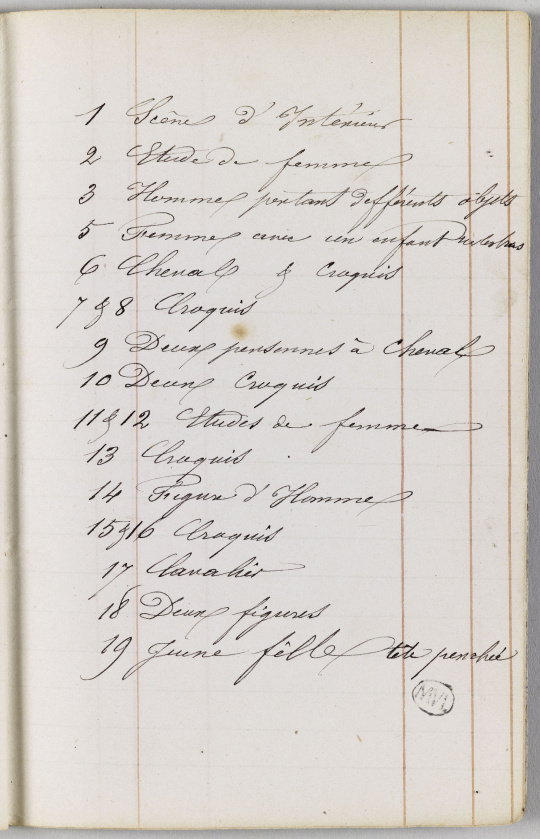 1 Scène d'Intérieur
2 Etude de femme
3 Homme portant différents objets
5 Femme avec un enfant sur les bras
6 Cheval & Croquis
7 & 8 Croquis
9 Deux personnes à cheval
10 Deux Croquis
11 & 12 Etudes de femme
13 Croquis
14 Figure d'Homme
15 & 16 Croquis
17 Cavalier
18 Deux figures
19 Jeune fille tête penchée